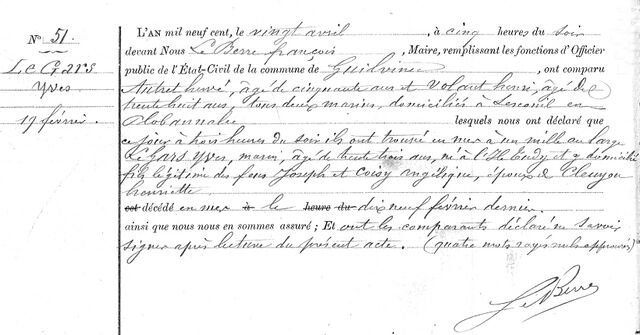 N° 51.
Le Gars
Yves
19 février.
L'AN mil neuf cent, le vingt avril, à cinq heures du soir
devant Nous Le Berre françois, Maire, remplissant les fonctions d'Officier
public de l'État-Civil de la commune de Guilvinec, ont comparu
Autret hervé, âgé de cinquante ans et Volant henri, âgé de
trente huit ans, tous deux marins, domiciliés à Lesconil en
Plobannalec lesquels nous ont déclaré que
ce jour à trois heures du soir ils ont trouvé en mer à un mille au large
Le Gars Yves, marin, âgé de trente trois ans, né à l'Ile Tudy et y domicilié
fils légitime des feus Joseph et Coïsy Angélique, époux de Cleuyou
henriette
est décédé en mer à le heure du dix neuf février dernier.
ainsi que nous nous en sommes assuré ; Et ont les comparants déclaré ne savoir
signer après lecture du présent acte. (quatre mots rayés nuls approuvés)
Le Berre